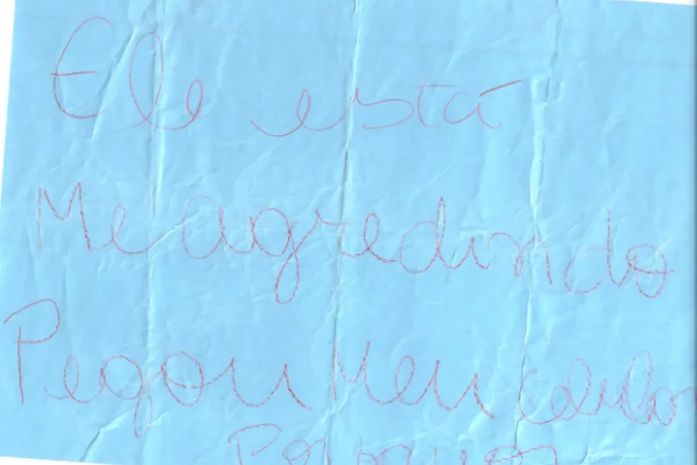 Ele está
Me agredindo
Pegou meu celular
Por